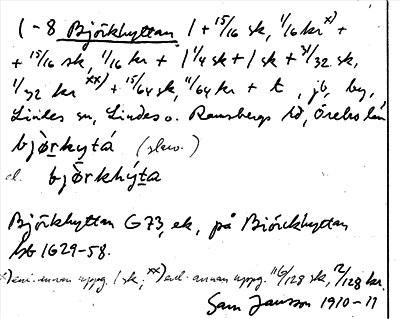 1-8 Björkhyttan 1 + 15/16 sk, 1/16 kr x) +
+ 15/16 sk, 1/16 kr + 1 1/4 sk + 1 sk + 31/32 sk,
1/32 kr xx) + 15/64 sk, 11/64 kr + t, jb, by,
Lindes sn, Lindes o. Ramsbergs hd, Örebro län
bjò̱rkytá (skro.)
el. bjò̱rkhýt̲a
Björkhyttan G73, ek, på Björckhyttan
hb 1629-58.
x) enl. annan uppg. 1 sk; xx) enl. annan uppg. 116/128 sk, 12/128 kr.
Sam Jansson 1910-11